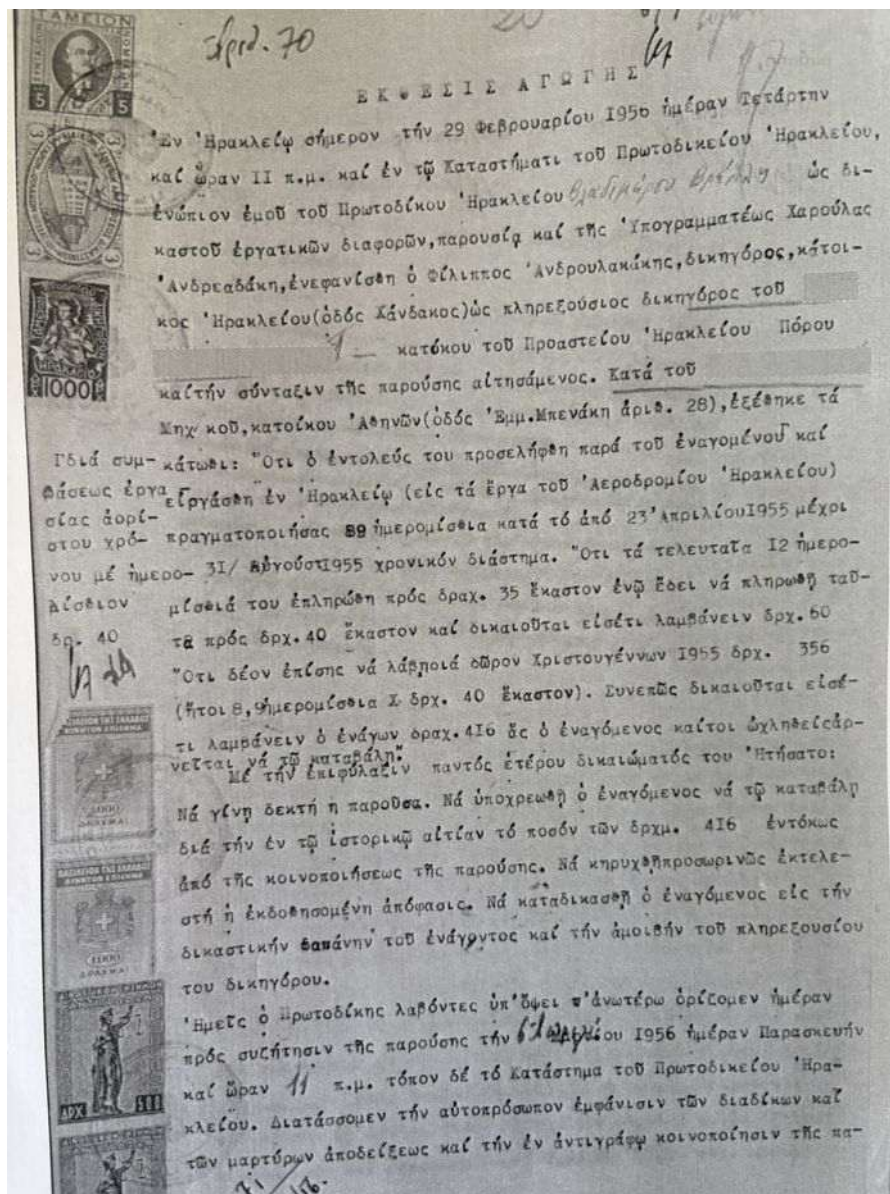 Ἀριθ. 70
20
ΕΚΘΕΣΙΣ ΑΓΩΓΗΣ
Ἐν Ἡρακλείῳ σήμερον τήν 29 Φεβρουαρίου I956 ἡμέραν Τετάρτην
καί ὥραν II π.μ. καί ἐν τῷ Καταστήματι τοῦ Πρωτοδικείου Ἡρακλείου,
ἐνώπιον ἐμοῦ τοῦ Πρωτοδίκου Ἡρακλείου ὡς δι-
καστοῦ ἐργατικῶν διαφορῶν,παρουσίᾳ καί τῆς Ὑπογραμματέως Χαρούλας
Ἀνδρεαδάκη,ἐνεφανίσθη ὁ Φίλιππος Ἀνδρουλακάκης,δικηγόρος,κάτοι-
κος Ἡρακλείου(ὁδός Χάνδακος)ὡς πληρεξούσιος δικηγόρος τοῦ
κατοίκου τοῦ Προαστείου Ἡρακλείου Πόρου
καίτήν σύνταξιν τῆς παρούσης αἰτησάμενος. Κατά τοῦ
Μηχ κοῦ,κατοίκου Ἀθηνῶν(ὁδός Ἐμμ.Μπενάκη ἀριθ. 28),ἐξέθηκε τά
κάτωθι: "Οτι ὁ ἐντολεύς του προσελήφθη παρά τοῦ ἐναγομένουΓ καί
εἰργάσθη ἐν Ἡρακλείῳ (εἰς τά ἔργα τοῦ Ἀεροδρομίου Ἡρακλείου)
πραγματοποιήσας 89 ἡμερομίσθια κατά τό ἀπό 23 ἈπριλίουI955 μέχρι
3I/ Αὐγούστ1955 χρονικόν διάστημα. "Οτι τά τελευταῖα I2 ἡμερο-
μίσθιά του ἐπληρώθη πρός δραχ. 35 ἕκαστον ἐνῷ ἔδει νά πληρωθῇ ταῦ-
τα πρός δρχ.40 ἕκαστον καί δικαιοῦται εἰσέτι λαμβάνειν δρχ.60
"Οτι δέον ἐπίσης νά λάβῃδιά δῶρον Χριστουγέννων I955 δρχ. 356
(ἤτοι 8,9ἡμερομίσθια Χ δρχ. 40 ἕκαστον). Συνεπῶς δικαιοῦται εἰσέ-
τι λαμβάνειν ὁ ἐνάγων δραχ.4I6 ἅς ὁ ἐναγόμενος καίτοι ὠχληθείςἀρ-
νεῖται νά τῷ καταβάλῃ".
Μέ τήν ἐπιφύλαξιν παντός ἑτέρου δικαιώματός του Ἠτήσατο:
Νά γίνῃ δεκτή η παροῦσα. Νά ὑποχρεωθῇ ὁ ἐναγόμενος νά τῷ καταβάλῃ
διά τήν ἐν τῷ ἱστορικῷ αἰτίαν τό ποσόν τῶν δρχμ. 4I6 ἐντόκως
ἀπό τῆς κοινοποιήσεως τῆς παρούσης. Νά κηρυχθῇπροσωρινῶς ἐκτελε-
στή ἡ ἐκδοθησομένη ἀπόφασις. Νά καταδικασθῇ ὁ ἐναγόμενος εἰς τήν
δικαστικήν δαπάνην τοῦ ἐνάγοντος καί τήν ἀμοιβήν τοῦ πληρεξουσίου
του δικηγόρου.
Ἡμεῖς ὁ Πρωτοδίκης λαβόντες ὑπ'ὄψει τ'ἀνωτέρω ὁρίζομεν ἡμέραν
πρός συζήτησιν τῆς παρούσης τήν I956 ἡμέραν Παρασκευήν
καί ὥραν 11 π.μ. τόπον δέ τό Κατάστημα τοῦ Πρωτοδικείου Ἡρα-
κλείου. Διατάσσομεν τήν αὐτοπρόσωπον ἐμφάνισιν τῶν διαδίκων καί
τῶν μαρτύρων ἀποδείξεως καί τήν ἐν ἀντιγράφῳ κοινοποίησιν τῆς πα-
Γδιά συμ-
βάσεως ἐργα
σίας ἀορί-
στου χρό-
νου μέ ἡμερο-
μίσθιον
δρ. 40
ΤΑΜΕΙΟΝ
5 5
3 3
ΗΡΑΚΛΕΙΟ
1000
ΒΑΣΙΛΕΙΟΝ ΤΗΣ ΕΛΛΑΔΟΣ
ΚΙΝΗΤΟΝ ΕΠΙΣΗΜΑ
ΕΙΚΟΣΙ
ΔΡΑΧΜΑΙ
ΒΑΣΙΛΕΙΟΝ ΤΗΣ ΕΛΛΑΔΟΣ
ΚΙΝΗΤΟΝ ΕΠΙΣΗΜΑ
ΕΙΚΟΣΙ
ΔΡΑΧΜΑΙ
ΔΡΧ